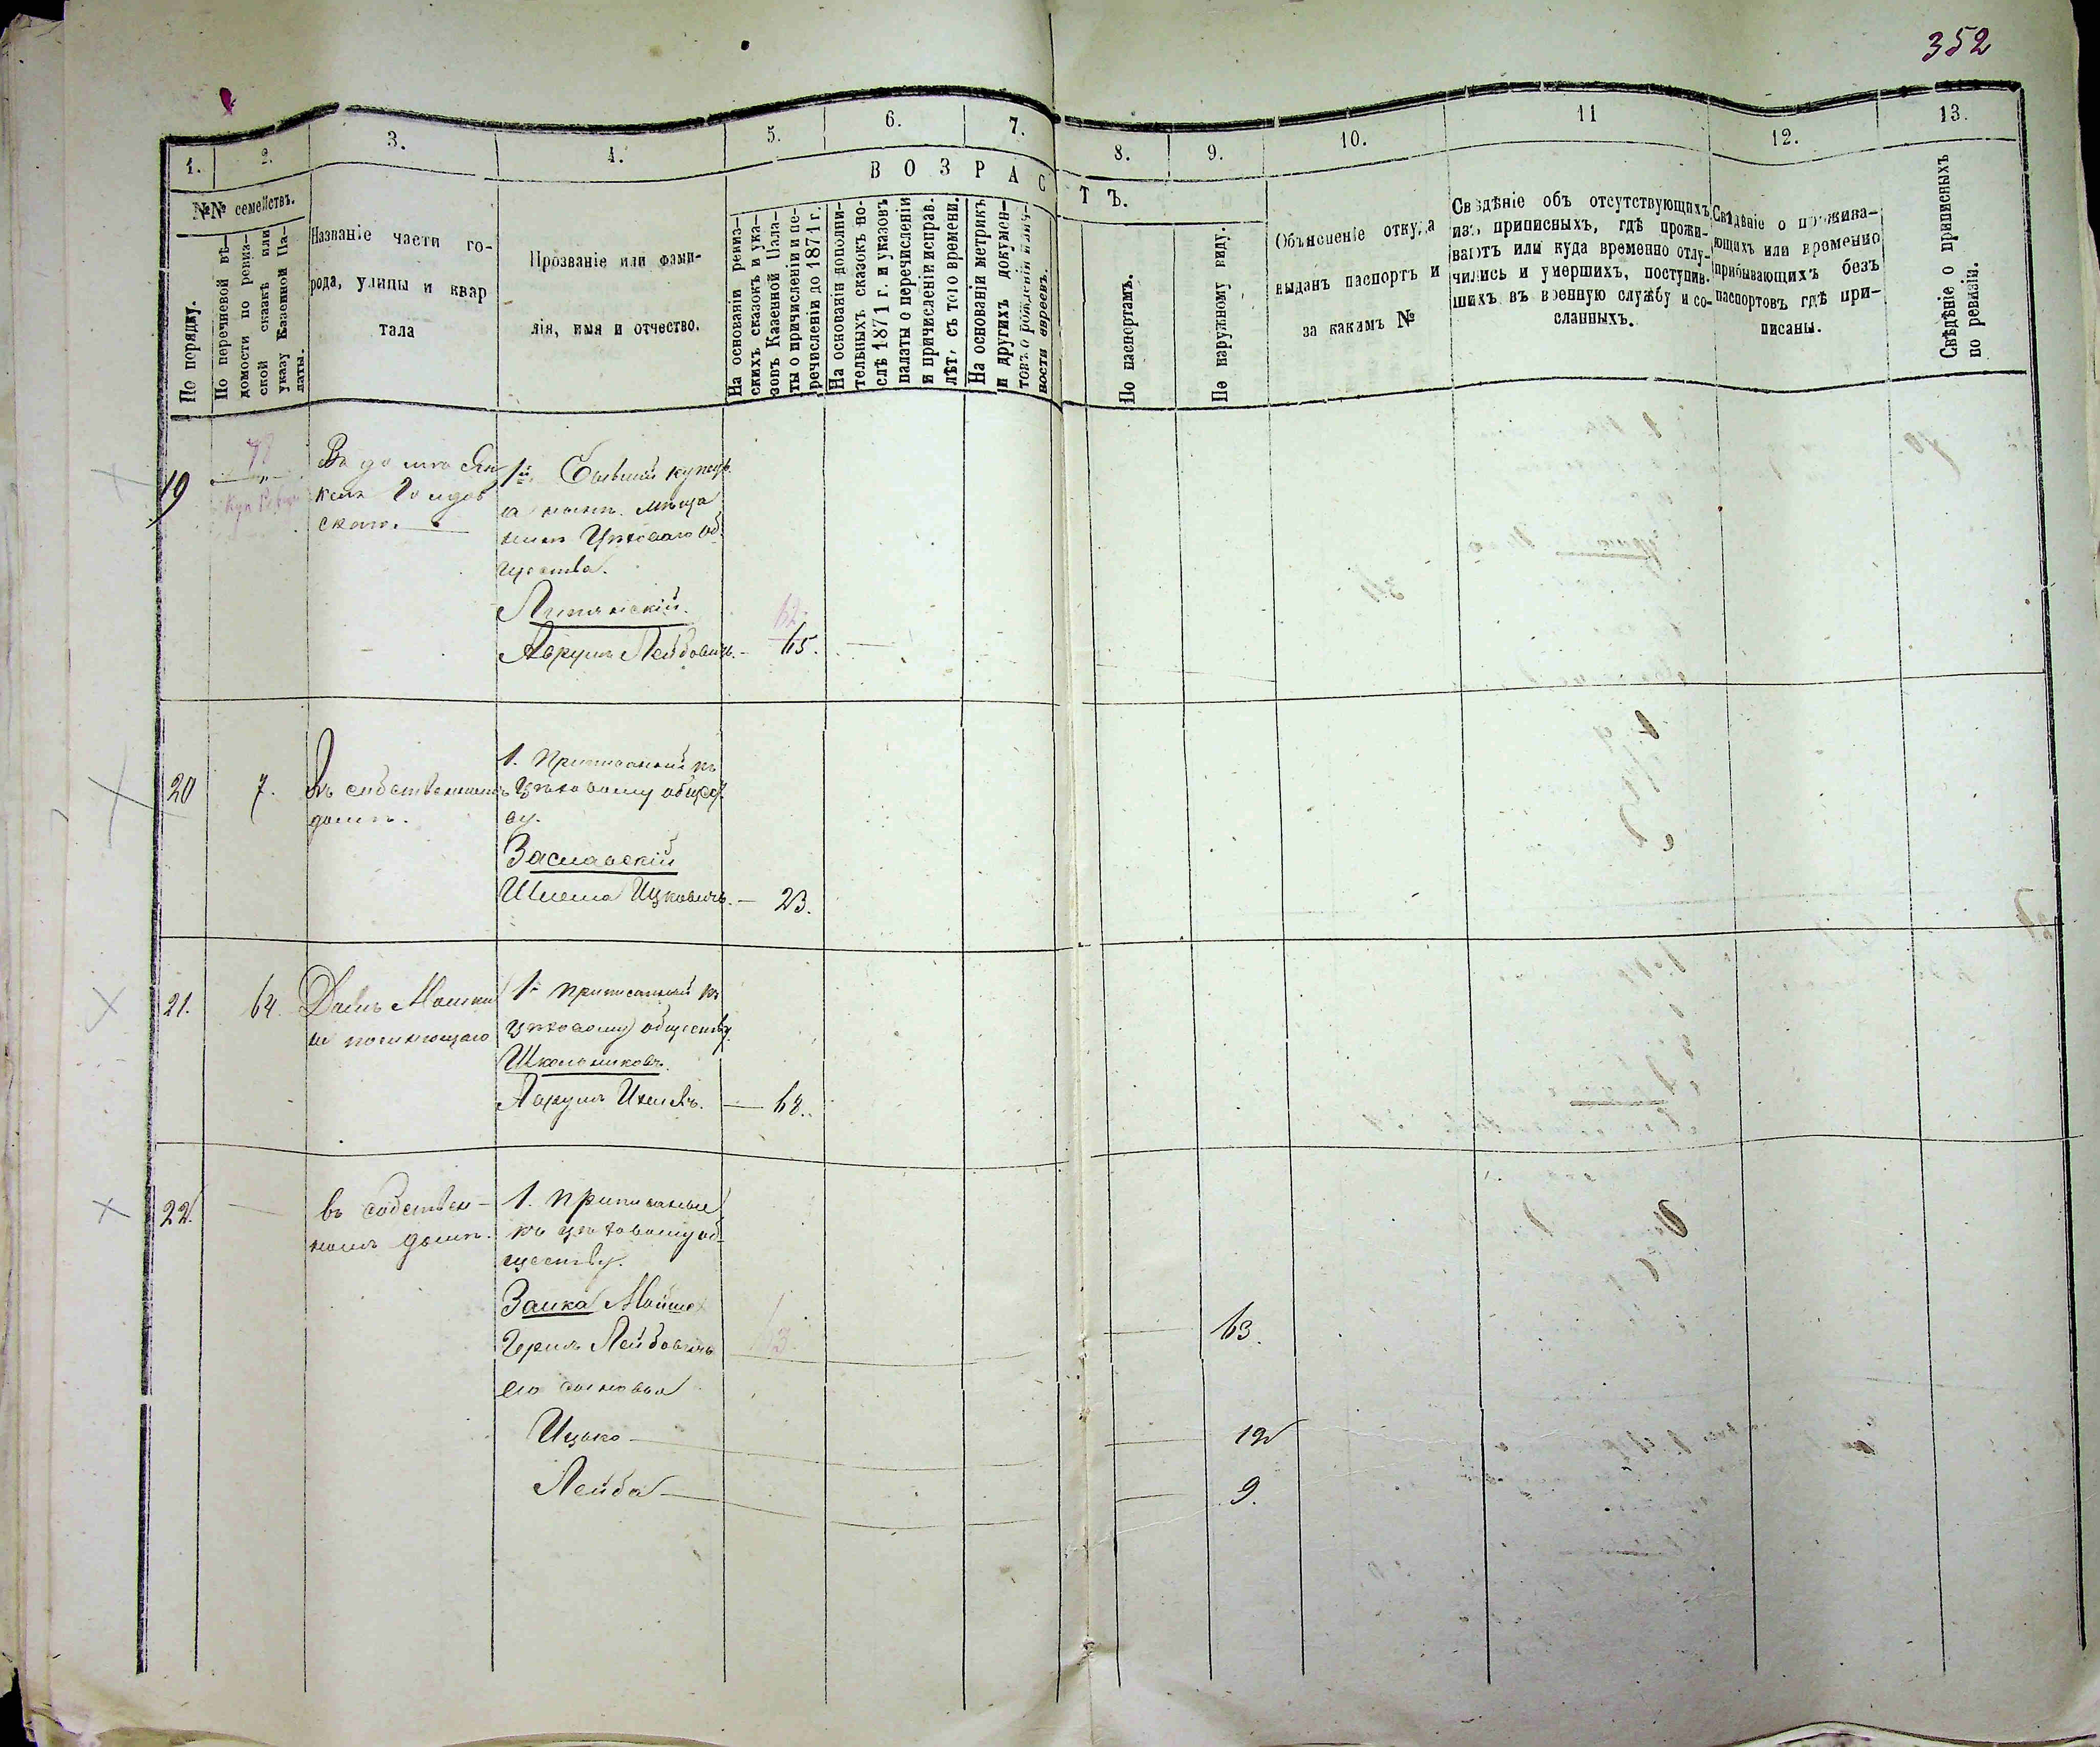 352
1.
2.
3.
4.
5.
6.
7.
8.
9.
10.
11
12.
13.
№№ семействъ.
ВОЗРАСТЪ.
По порядку.
По перечневой вѣ-
домости по ревиз-
ской сказкѣ или
указу Казенной Па-
латы.
Названіе части го-
рода, улицы и квар
тала
Прозваніе или фами-
лія, имя и отчество.
На основаніи ревиз-
скихъ сказокъ и ука-
зовъ Казенной Пала-
ты о причисленіи и пе-
речисленіи до 1871 г.
На основаніи дополни-
тельныхъ сказокъ по-
слѣ 1871 г. и указовъ
палаты о перечисленіи
и причисленіи исправ.
лѣтъ съ того времени.
На основаніи метрикъ
и другихъ докумен-
товъ о рожденіи
ности евреевъ.
По паспортамъ.
По наружному виду.
Объясненіе откуда
выданъ паспортъ и
за какимъ №
Свѣдѣніе объ отсутствующихъ
изъ приписныхъ, гдѣ прожи-
ваютъ или куда временно отлу-
чились и умершихъ, поступив-
шихъ въ военную службу и со-
сланныхъ.
Свѣдѣніе о прожива-
ющихъ или временно
прибывающихъ безъ
паспортовъ гдѣ при-
писаны.
Свѣдѣніе о приписныхъ
по ревизіи.
19
Въ домѣ Ян
келя
скаго.
1й Бывшій купецъ
а нынѣ мѣща
нинъ Цехового об-
щества.
Липянскій.
62.
Аврумъ Лейбовичъ. - 65.
20
7.
Въ собственномъ
домѣ.
1. Приписанный къ
Цеховому общест
ву.
Заславскій
Шлема Ицковичъ. — 23.
21.
64.
Домъ Мошки
1й приписанный къ
цеховому обществу.
Школьниковъ.
— 68.
22.
въ собствен-
номъ домѣ.
1. приписанные
къ цеховому об-
ществу.
Заика Мойше
Гершъ Лейбовичъ
63
63.
его сыновья
Ицько
12
Лейба
9.